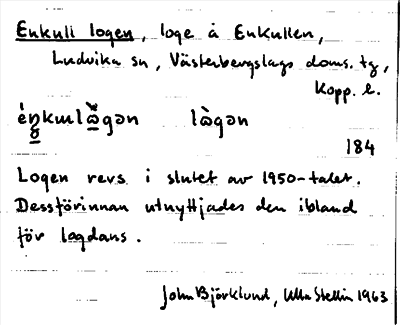 Enkull logen, loge å Enkullen,
Ludvika sn, Västerbergslags doms. tg,
Kopp. l.
184
Logen revs i slutet av 1950-talet.
Dessförinnan utnyttjades den ibland
för logdans.
John Björklund, Ulla Stellin 1963